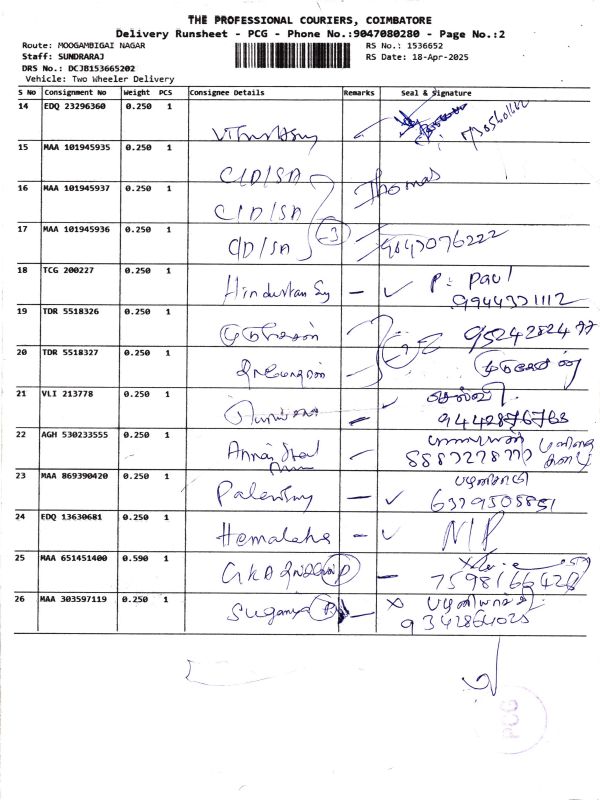 THE PROFESSIONAL COURIERS, COIMBATORE
Delivery Runsheet - PCG - Phone No.:9047080280 - Page No.:2
Route: MOOGAMBIGAI NAGAR
RS No.: 1536652
Staff: SUNDRARAJ
RS Date: 18-Apr-2025
DRS No.: DCJB153665202
Vehicle: Two Wheeler Delivery
S No Consignment No Weight PCS Consignee Details Remarks Seal & Signature
14 EDQ 23296360 0.250 1
15 MAA 101945935 0.250 1
CID/SA
16 MAA 101945937 0.250 1 Thomas
CID/SA
17 MAA 101945936 0.250 1
CID/SA 3 9043076222
18 TCG 200227 0.250 1 P. Paul
Hindustan 9944331112
19 TDR 5518326 0.250 1
முருகேசன் 9524282477
20 TDR 5518327 0.250 1
முருகேசன்
21 VLI 213778 0.250 1 செல்வி
9442876763
22 AGH 530233555 0.250 1
Annai
23 MAA 869390420 0.250 1
6379505851
24 EDQ 13630681 0.250 1
Hemalatha N/P
25 MAA 651451400 0.590 1
GKD P 7598166428
26 MAA 303597119 0.250 1
Suganya P 9342864025
PCG